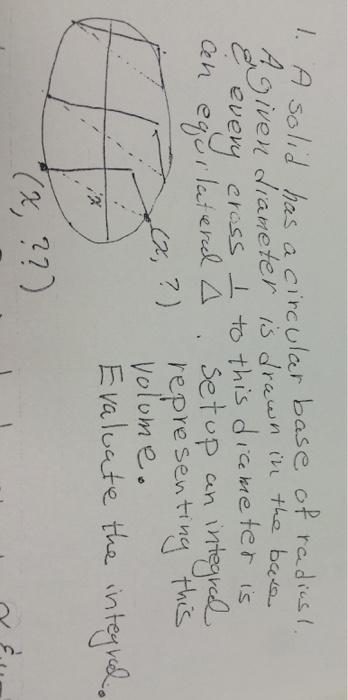 1. A solid has a circular base of radius 1.
A given diameter is drawn in the base
& every cross ⊥ to this diameter is
an equilateral △. Setup an integral
representing this
volume.
Evaluate the integral.
(x, ?)
x
(x, ??)